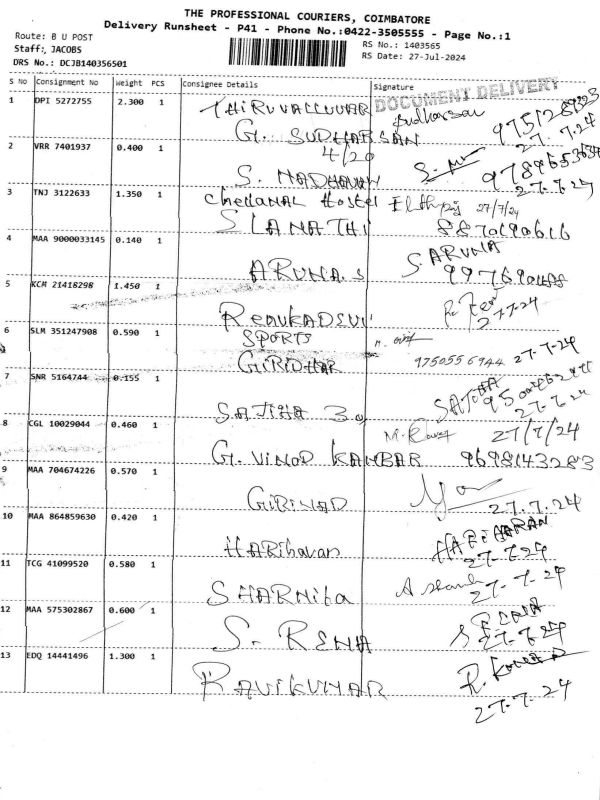 THE PROFESSIONAL COURIERS, COIMBATORE
Delivery Runsheet - P41 - Phone No.:0422-3505555 - Page No.:1
Route: B U POST
RS No.: 1403565
Staff: JACOBS
RS Date: 27-Jul-2024
DRS No.: DCJB140356501
S No Consignment No Weight PCS Consignee Details Signature
DOCUMENT DELIVERY
1 DPI 5272755 2.300 1 THIRUVALLUVAR Sudharsan
G. SUDHARSAN 27.7.24
2 VRR 7401937 0.400 1 4/20
S. MADHAVAN 27.7.24
3 TNJ 3122633 1.350 1 Chellanal Hostel 27/7/24
SLANATHI 8870690616
4 MAA 9000033145 0.140 1 S. ARUNA
ARUNA.S
5 KCM 21418298 1.450 1
RENUKADEVI 27.7.24
6 SLM 351247908 0.590 1 SPORTS
GIRIDHAR 9750556944 27.7.24
7 SNR 5164744 0.155 1
SAJITHA 27.7.24
8 CGL 10029044 0.460 1 27/7/24
G. VINOD KAMBAR 9698143283
9 MAA 704674226 0.570 1
GIRINAD 27.7.24
10 MAA 864859630 0.420 1 HARIHARAN
HARIharan 27.7.24
11 TCG 41099520 0.580 1
SHARNIka 27.7.24
12 MAA 575302867 0.600 1
S. RENA 27.7.24
13 EDQ 14441496 1.300 1
RAVIKUMAR 27.7.24